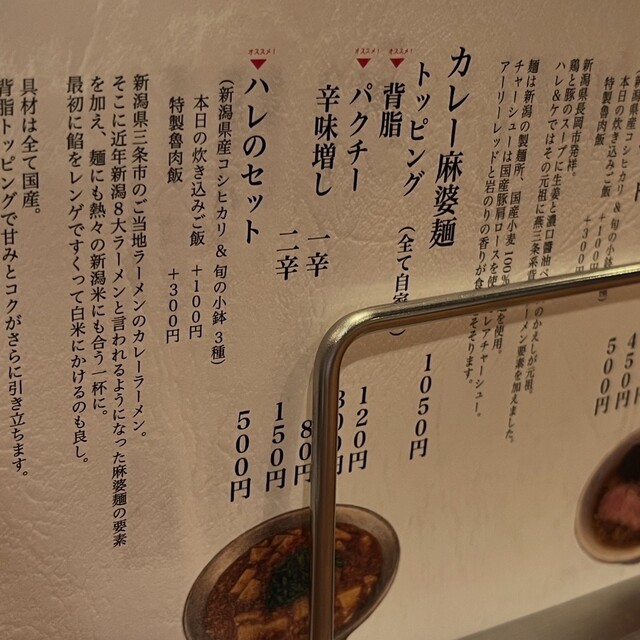 本日の炊き込みご飯 +100円
特製魯肉飯 +300円
450円
500円
新潟県長岡市発祥。
鶏と豚のスープに生姜と濃口醤油
のかえしが元祖。
ハレ&ケではその元祖に燕三条系背
ーメン要素を加えました。
麺は新潟の製麺所、国産小麦100%
を使用。
チャーシューは国産豚肩ロースを使
レアチャーシュー。
アーリーレッドと岩のりの香りが食
そそります。
カレー麻婆麺 1050円
トッピング (全て自家
オススメ!
背脂 120円
オススメ!
パクチー 300円
辛味増し 一辛 80円
二辛 150円
オススメ!
ハレのセット 500円
(新潟県産コシヒカリ & 旬の小鉢3種)
本日の炊き込みご飯 +100円
特製魯肉飯 +300円
新潟県三条市のご当地ラーメンのカレーラーメン。
そこに近年新潟8大ラーメンと言われるようになった麻婆麺の要素
を加え、麺にも熱々の新潟米にも合う一杯に。
最初に餡をレンゲですくって白米にかけるのも良し。
具材は全て国産。
背脂トッピングで甘みとコクがさらに引き立ちます。